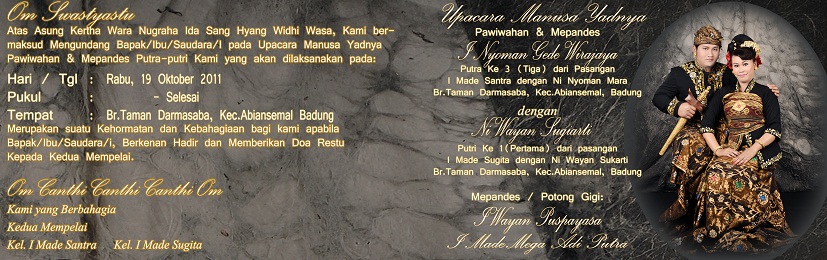 Om Swastyastu
Atas Asung Kertha Wara Nugraha Ida Sang Hyang Widhi Wasa, Kami ber-
maksud Mengundang Bapak/Ibu/Saudara/I pada Upacara Manusa Yadnya
Pawiwahan & Mepandes Putra-putri Kami yang akan dilaksanakan pada:
Hari / Tgl : Rabu, 19 Oktober 2011
Pukul : - Selesai
Tempat : Br.Taman Darmasaba, Kec.Abiansemal Badung
Merupakan suatu Kehormatan dan Kebahagiaan bagi kami apabila
Bapak/Ibu/Saudara/i, Berkenan Hadir dan Memberikan Doa Restu
Kepada Kedua Mempelai.
Om Canthi Canthi Canthi Om
Kami yang Berbahagia
Kedua Mempelai
Kel. I Made Santra Kel. I Made Sugita
Upacara Manusa Yadnya
Pawiwahan & Mepandes
I Nyoman Gede Wirajaya
Putra Ke 3 (Tiga) dari Pasangan
I Made Santra dengan Ni Nyoman Mara
Br.Taman Darmasaba, Kec.Abiansemal, Badung
dengan
Ni Wayan Sugiarti
Putri Ke 1(Pertama) dari pasangan
I Made Sugita dengan Ni Wayan Sukarti
Br.Taman Darmasaba, Kec.Abiansemal, Badung
Mepandes / Potong Gigi:
I Wayan Puspayasa
I Made Mega Adi Putra